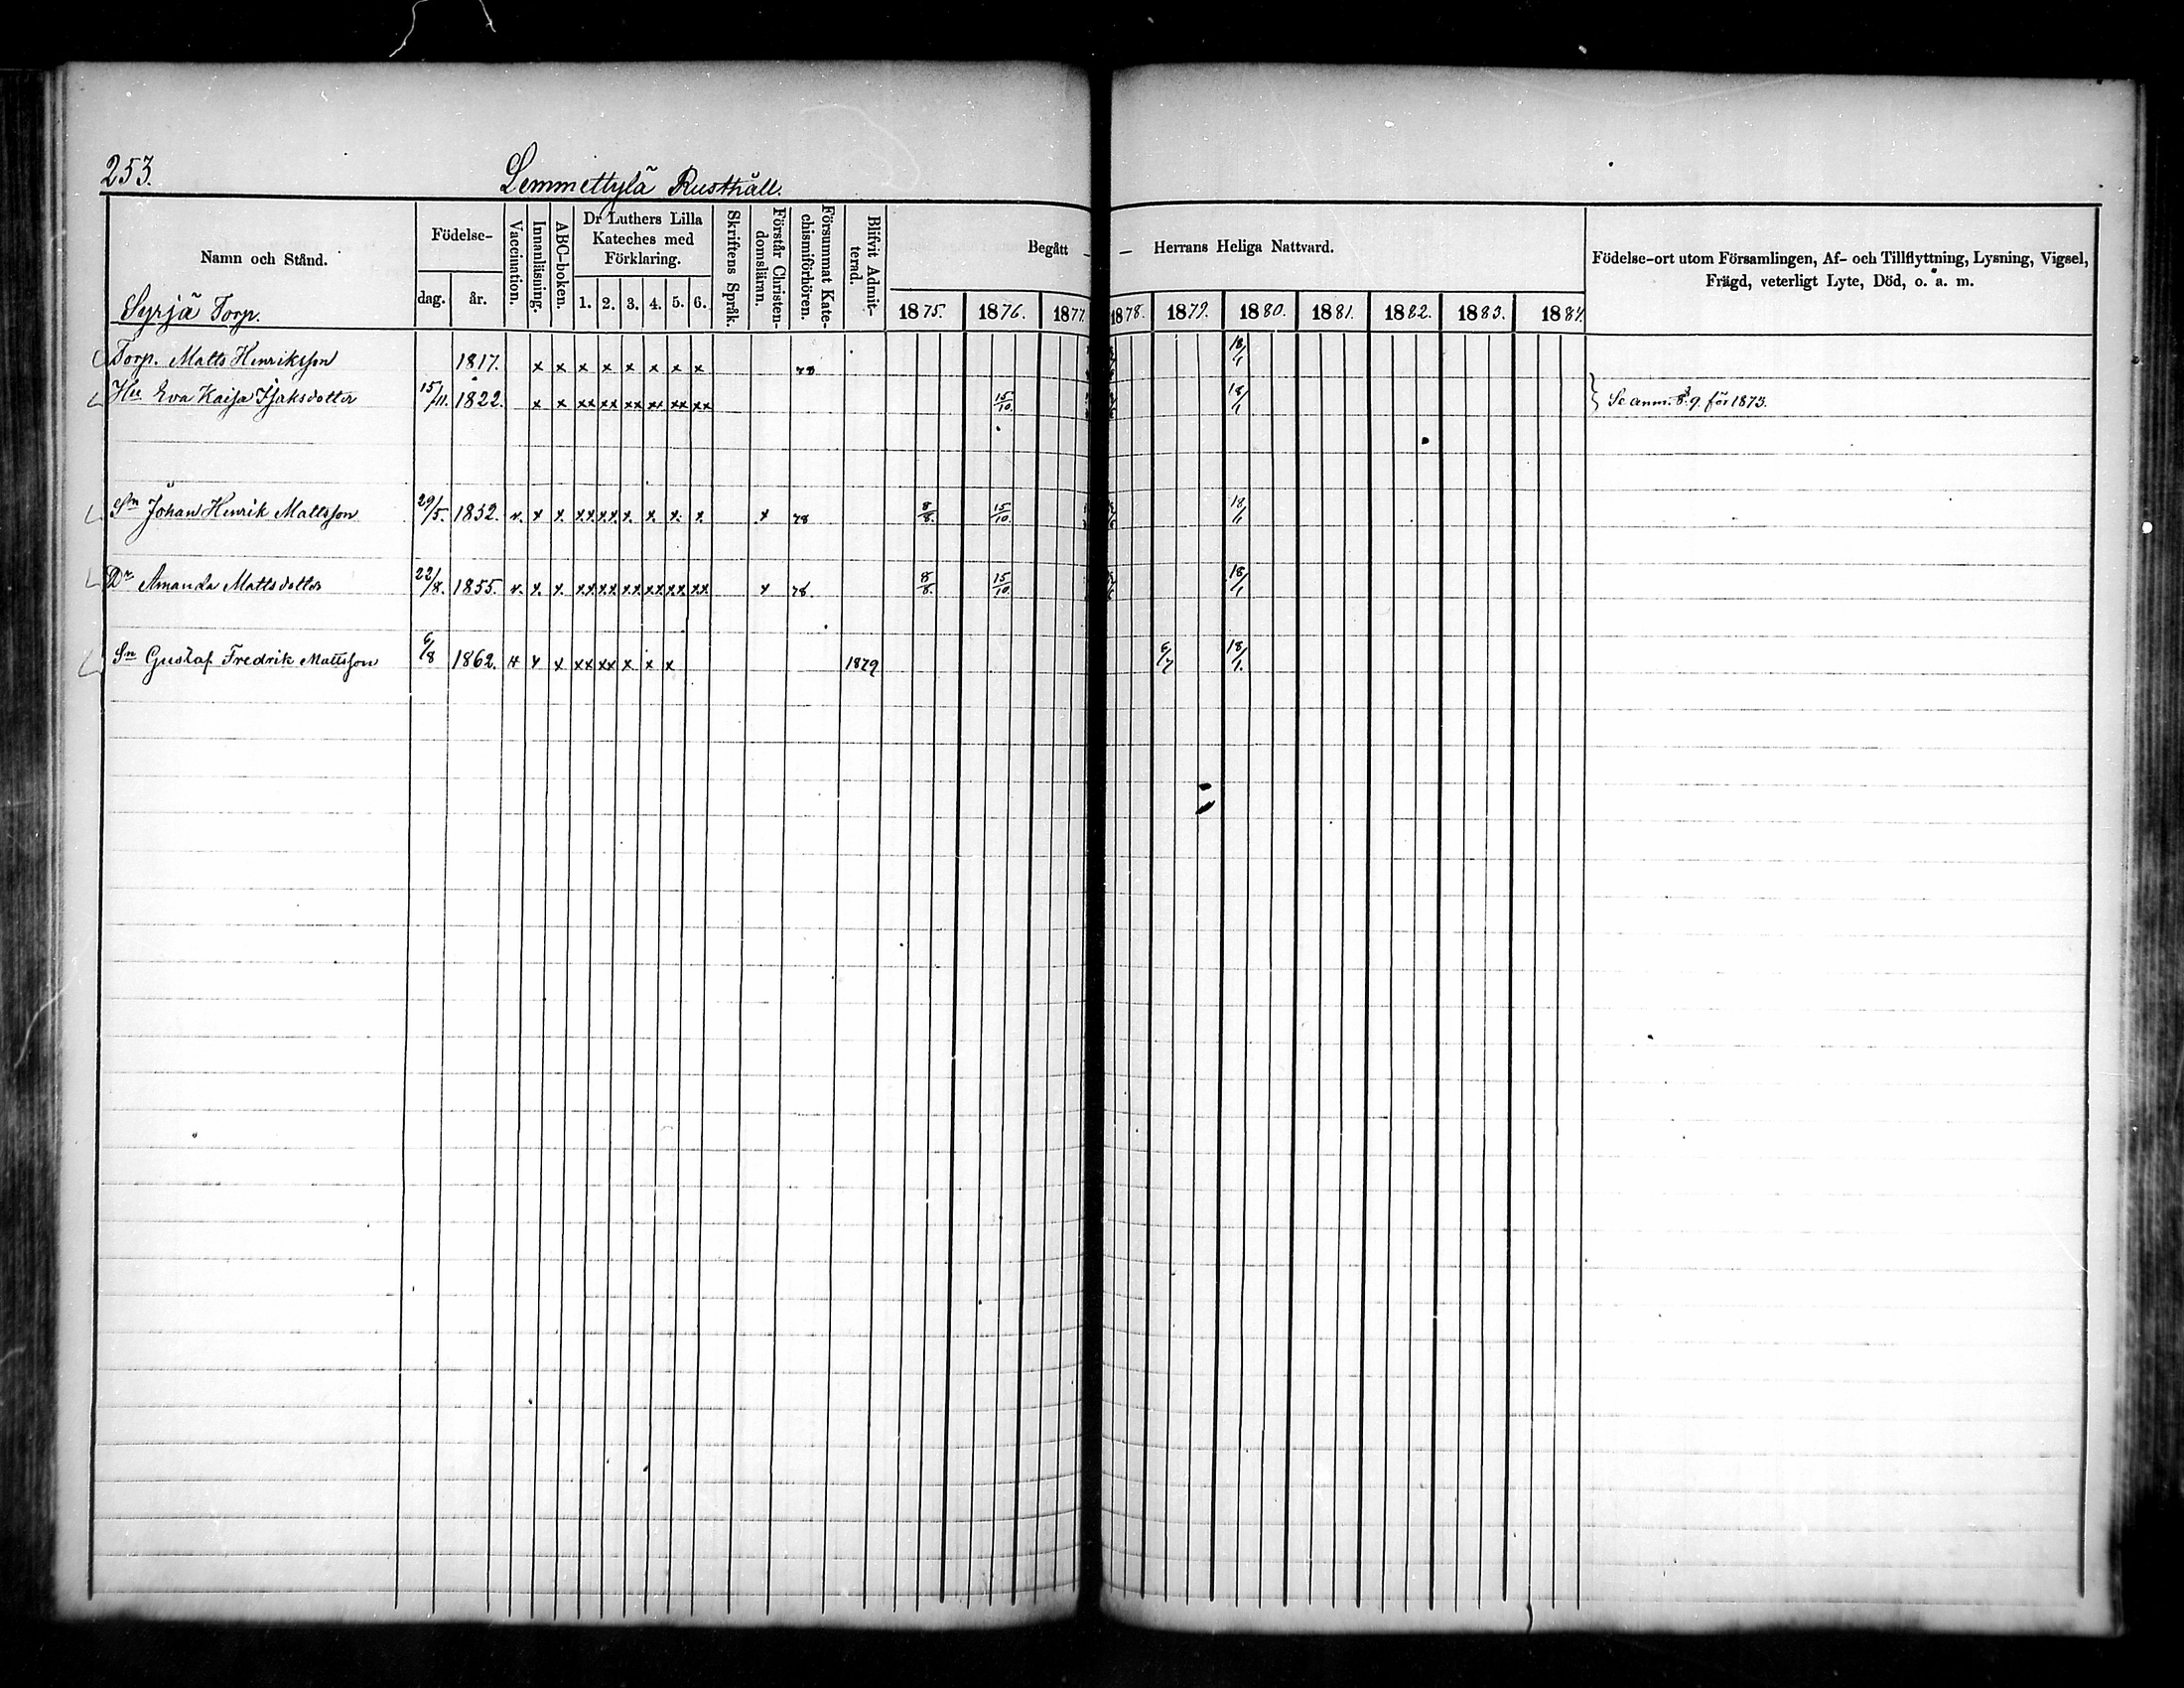 253.
Lemmettylä Rusthåll.
Namn och Stånd.
Syrjä Torp.
Födelse-
dag. år.
Vaccination.
Innanläsning.
ABC-boken.
Dr Luthers Lilla
Kateches med
Förklaring.
1. 2. 3. 4. 5. 6.
Skriftens Språk.
Förstår Christen-
domsläran.
Försummat Kate-
chismiförhören.
Blifvit Admit-
terad.
Begått — — Herrans Heliga Nattvard.
1875. 1876. 1877. 1878. 1879. 1880. 1881. 1882. 1883. 1884.
Födelse-ort utom Församlingen, Af- och Tillflyttning, Lysning, Vigsel,
Frägd, veterligt Lyte, Död, o. a. m.
Torp. Matts Henriksson 1817. x x x x x x x x 78 18/1
Hu Eva Kaisa Isaksdotter 15/11. 1822. x x xx xx xx xx xx xx 15/10. 18/1 Se anm. 9. för 1873.
Sn Johan Henrik Mattsson 29/5. 1852. v. x x. xx xx x. x. x. x. x 78 8/8. 15/10. 18/1
Dr Amanda Mattsdotter 22/8. 1855. v. x. x. xx xx xx xx xx xx x 78. 8/8. 15/10. 18/1
Sn Gustaf Fredrik Mattsson 6/8 1862. v x x xx xx x x x 1879 6/7 18/1.